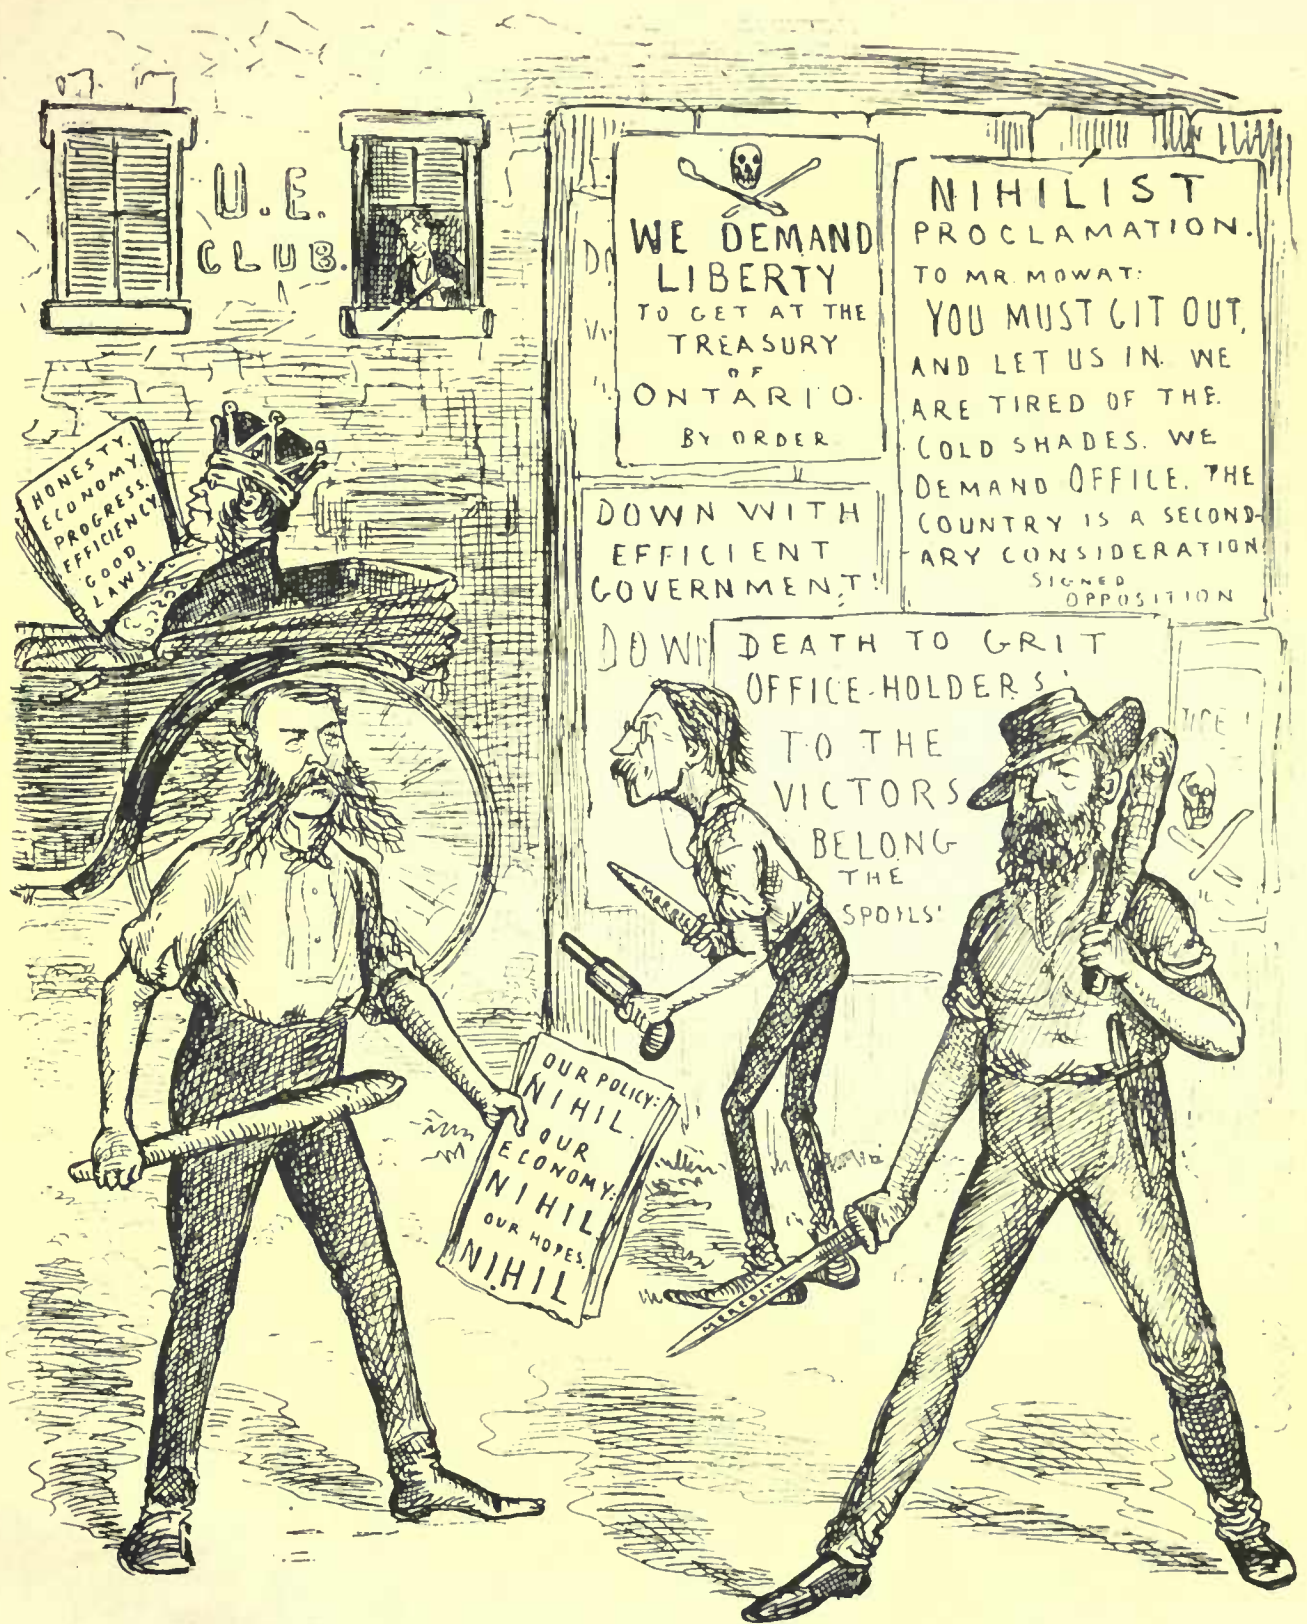 U. E.
CLUB.
HONESTY.
ECONOMY.
PROGRESS.
EFFICIENCY.
GOOD
LAWS.
WE DEMAND
LIBERTY
TO GET AT THE
TREASURY
OF
ONTARIO.
BY ORDER
NIHILIST
PROCLAMATION.
TO MR. MOWAT:
YOU MUST GIT OUT,
AND LET US IN. WE
ARE TIRED OF THE
COLD SHADES. WE
DEMAND OFFICE. THE
COUNTRY IS A SECOND-
ARY CONSIDERATION.
SIGNED
OPPOSITION
DOWN WITH
EFFICIENT
GOVERNMENT!
DOWN
DEATH TO GRIT
OFFICE-HOLDERS!
TO THE
VICTORS
BELONG
THE
SPOILS!
OUR POLICY:
NIHIL.
OUR
ECONOMY:
NIHIL
OUR HOPES.
NIHIL
MEREDITH